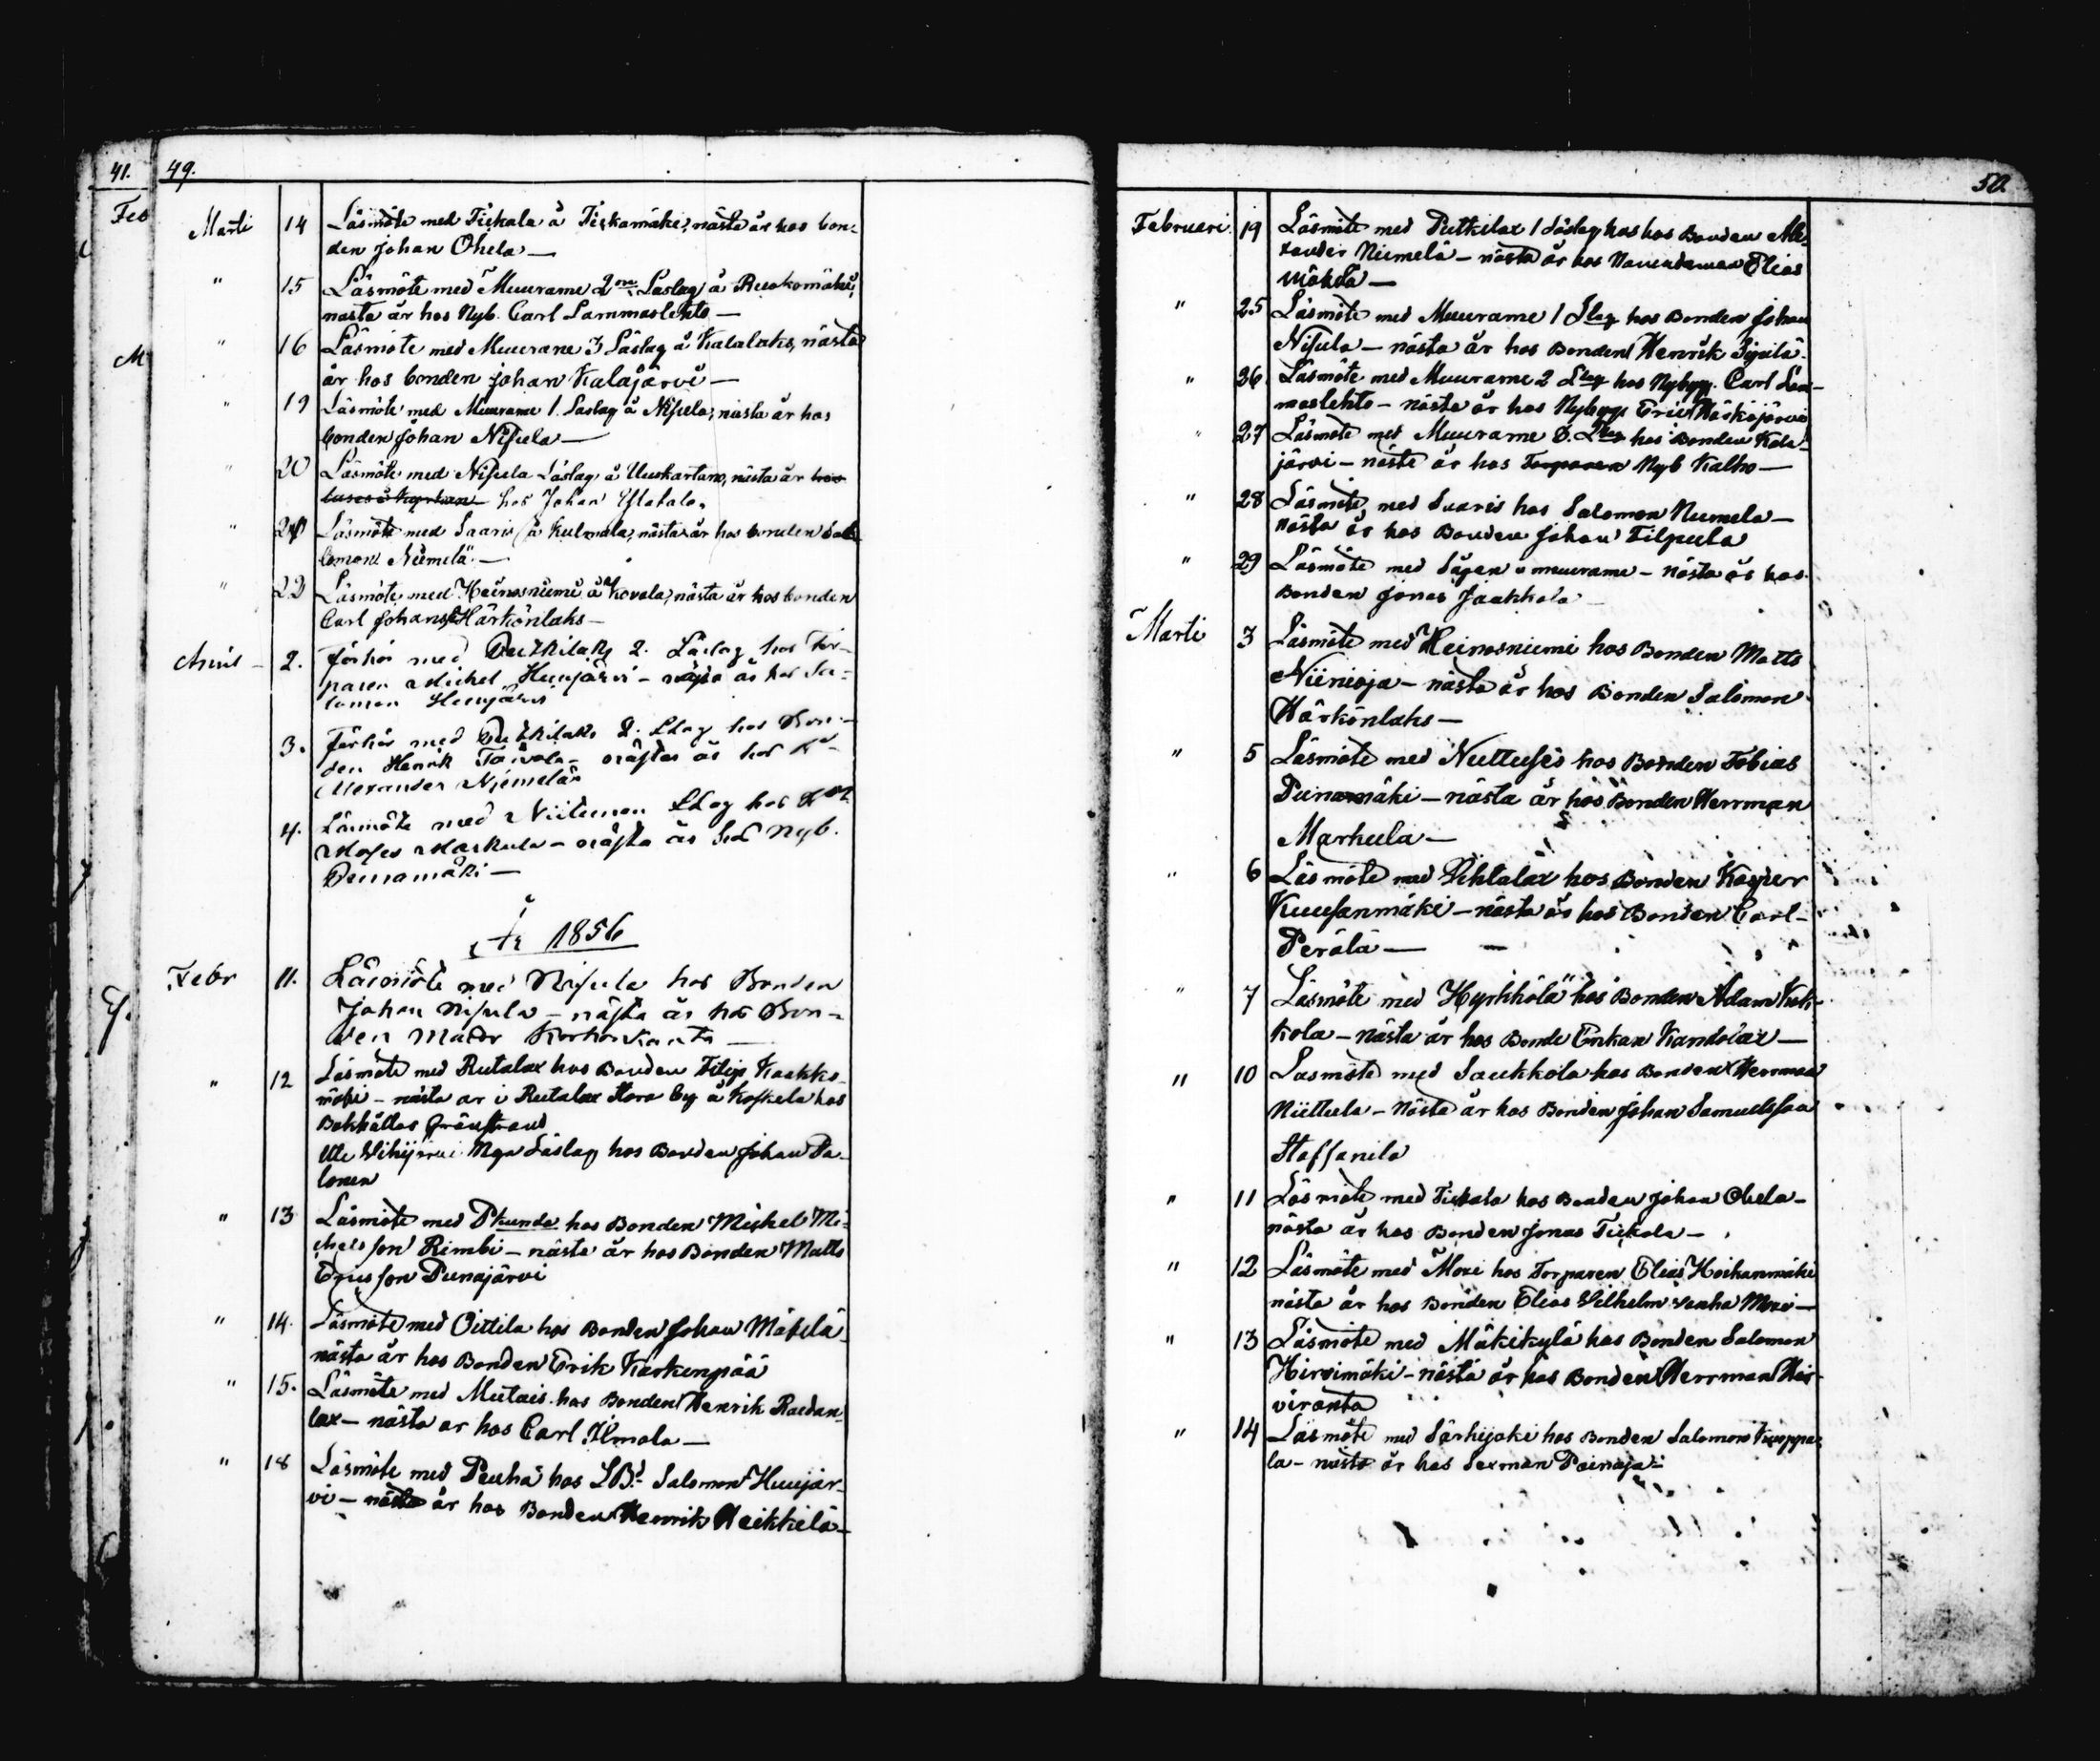 41. 49.
Feb
M
Marti 14 Läsmöte med Tickala å Tickamäke, nästa år hos bon-
den Johan Ohela —
" 15 Läsmöte med Muurame 2 Läslag å Ruokomäki,
nasta år hos Nyb. Carl Lammaslehto —
" 16 Läsmöte med Muurame 3 Läslag å Kalalaks, nästa
år hos bonden Johan Kalajärvi —
" 19 Läsmöte med Muurame 1. Laslag å Nisula, nästa år hos
bonden Johan Nisula —
" 20 Läsmöte med Nisula Läslag å Uuskartano, nästa år
hos Johan Ylatalo.
" Läsmöte med Saaris å Kulmala, nästa år hos bonden Salo
lomon Niemelä. —
" 22 Läsmöte med Heinosniemi å Hovala, nästa år hos bonden
Carl Johans Härkönlaks —
April — 2. Förhör med Putkilaks 2. Läslag hos Tor-
paren Michel Huujärvi — nästa år hos Sa-
lomon Huujärvi
3. Förhör med Putkilaks LLag hos Bon-
den Henrik Toivola — nästa år hos
Alexander Niemelä
4. Läsmöte med LLag hos
Moses Markula — nästa år hos Nyb.
Punamäki —
År 1856
Febr 11. Läsmöte med Nisula hos Bonden
Johan Nisula — nästa år hos Bon-
den
" 12 Läsmöte med Rutalax hos Bonden Filip Kaakko-
mäki — nästa ar i Rutalax Stora by å Koskela hos
Bokhållar Gränstrand
Läslag hos Bonden Johan Pa-
lonen
" 13 Läsmöte med hos Bonden Mickel Mi-
chelsson Rimbi — nästa år hos Bonden Matts
Ericsson Punajärvi
" 14. Läsmöte med Oittila hos Bonden Johan Mäkelä
nästa år hos Bonden Erik Karkenpää
" 15. Läsmöte med Mutais hos Bonden Henrik Raudan-
lax — nästa ar hos Carl Ilmola —
" 18 Läsmöte med Pauha hos LB. Salomon Huujär-
vi — nästa år hos Bonden Henrik Heikkilä —
50.
Februari 19 Läsmöte med Putkilax 1 Läslag hos hos Bonden Ale-
xander Niemelä — nästa år hos Elias
Mökölä —
" 25 Läsmöte med Muurame 1 Llag hos Bonden Johan
Nisula — nästa år hos Bonden Henrik Sipilä
" 26 Läsmöte med Muurame 2 Llag hos Nybyg. Carl Lam-
maslehto — nästa år hos Nybyg. Eric
" 27 Läsmöte med Muurame 3. Llag hos Bonden Kala-
järvi — nästa år hos Torparen Nyb Kalho —
" 28 Läsmöte med Saaris hos Salomon Niemela —
nästa år hos Bonden Johan Tilpula
" 29 Läsmöte med Sågen i Muurame — nästa år hos
Bonden Jonas Jaakkola —
Marti 3 Läsmöte med Heinosniemi hos Bonden Matts
Niinioja — nästa år hos Bonden Salomon
Härkönlaks —
" 5 Läsmöte med Nuttusis hos Bonden Tobias
Punamäki — nästa är hos Bonden Herrman
Markula —
" 6 Läs möte med Vihtalax hos Bonden Kasper
Kuusanmäki — nästa år hos Bonden Carl
Perälä —
" 7 Läsmöte med Hyrkkölä hos Bonden Adam Kuk-
kola — nästa år hos Bonde Enkan Kandolax —
" 10 Lasmöte med Saukkola hos Bonden Herrman
Niittula — nästa år hos Bonden Johan Samuelsson
Staffanila
" 11 Läsmöte med Tickala hos Bonden Johan Ohela —
nästa år hos Bonden Jonas Tickala —
" 12 Läsmöte med Moxi hos Torparen Elias Hoikanmäki
nästa år hos Bonden Elias Wilhelm Vanha Moxi —
" 13 Läsmöte med Mäkikylä hos Bonden Salomon
Hirvimäki — nästa år hos Bonden Herrman Hir-
viranta
" 14 Läsmöte med Särkijoki hos Bonden Salomon Kuoppa-
la — nästa år hos Sexman Painoja